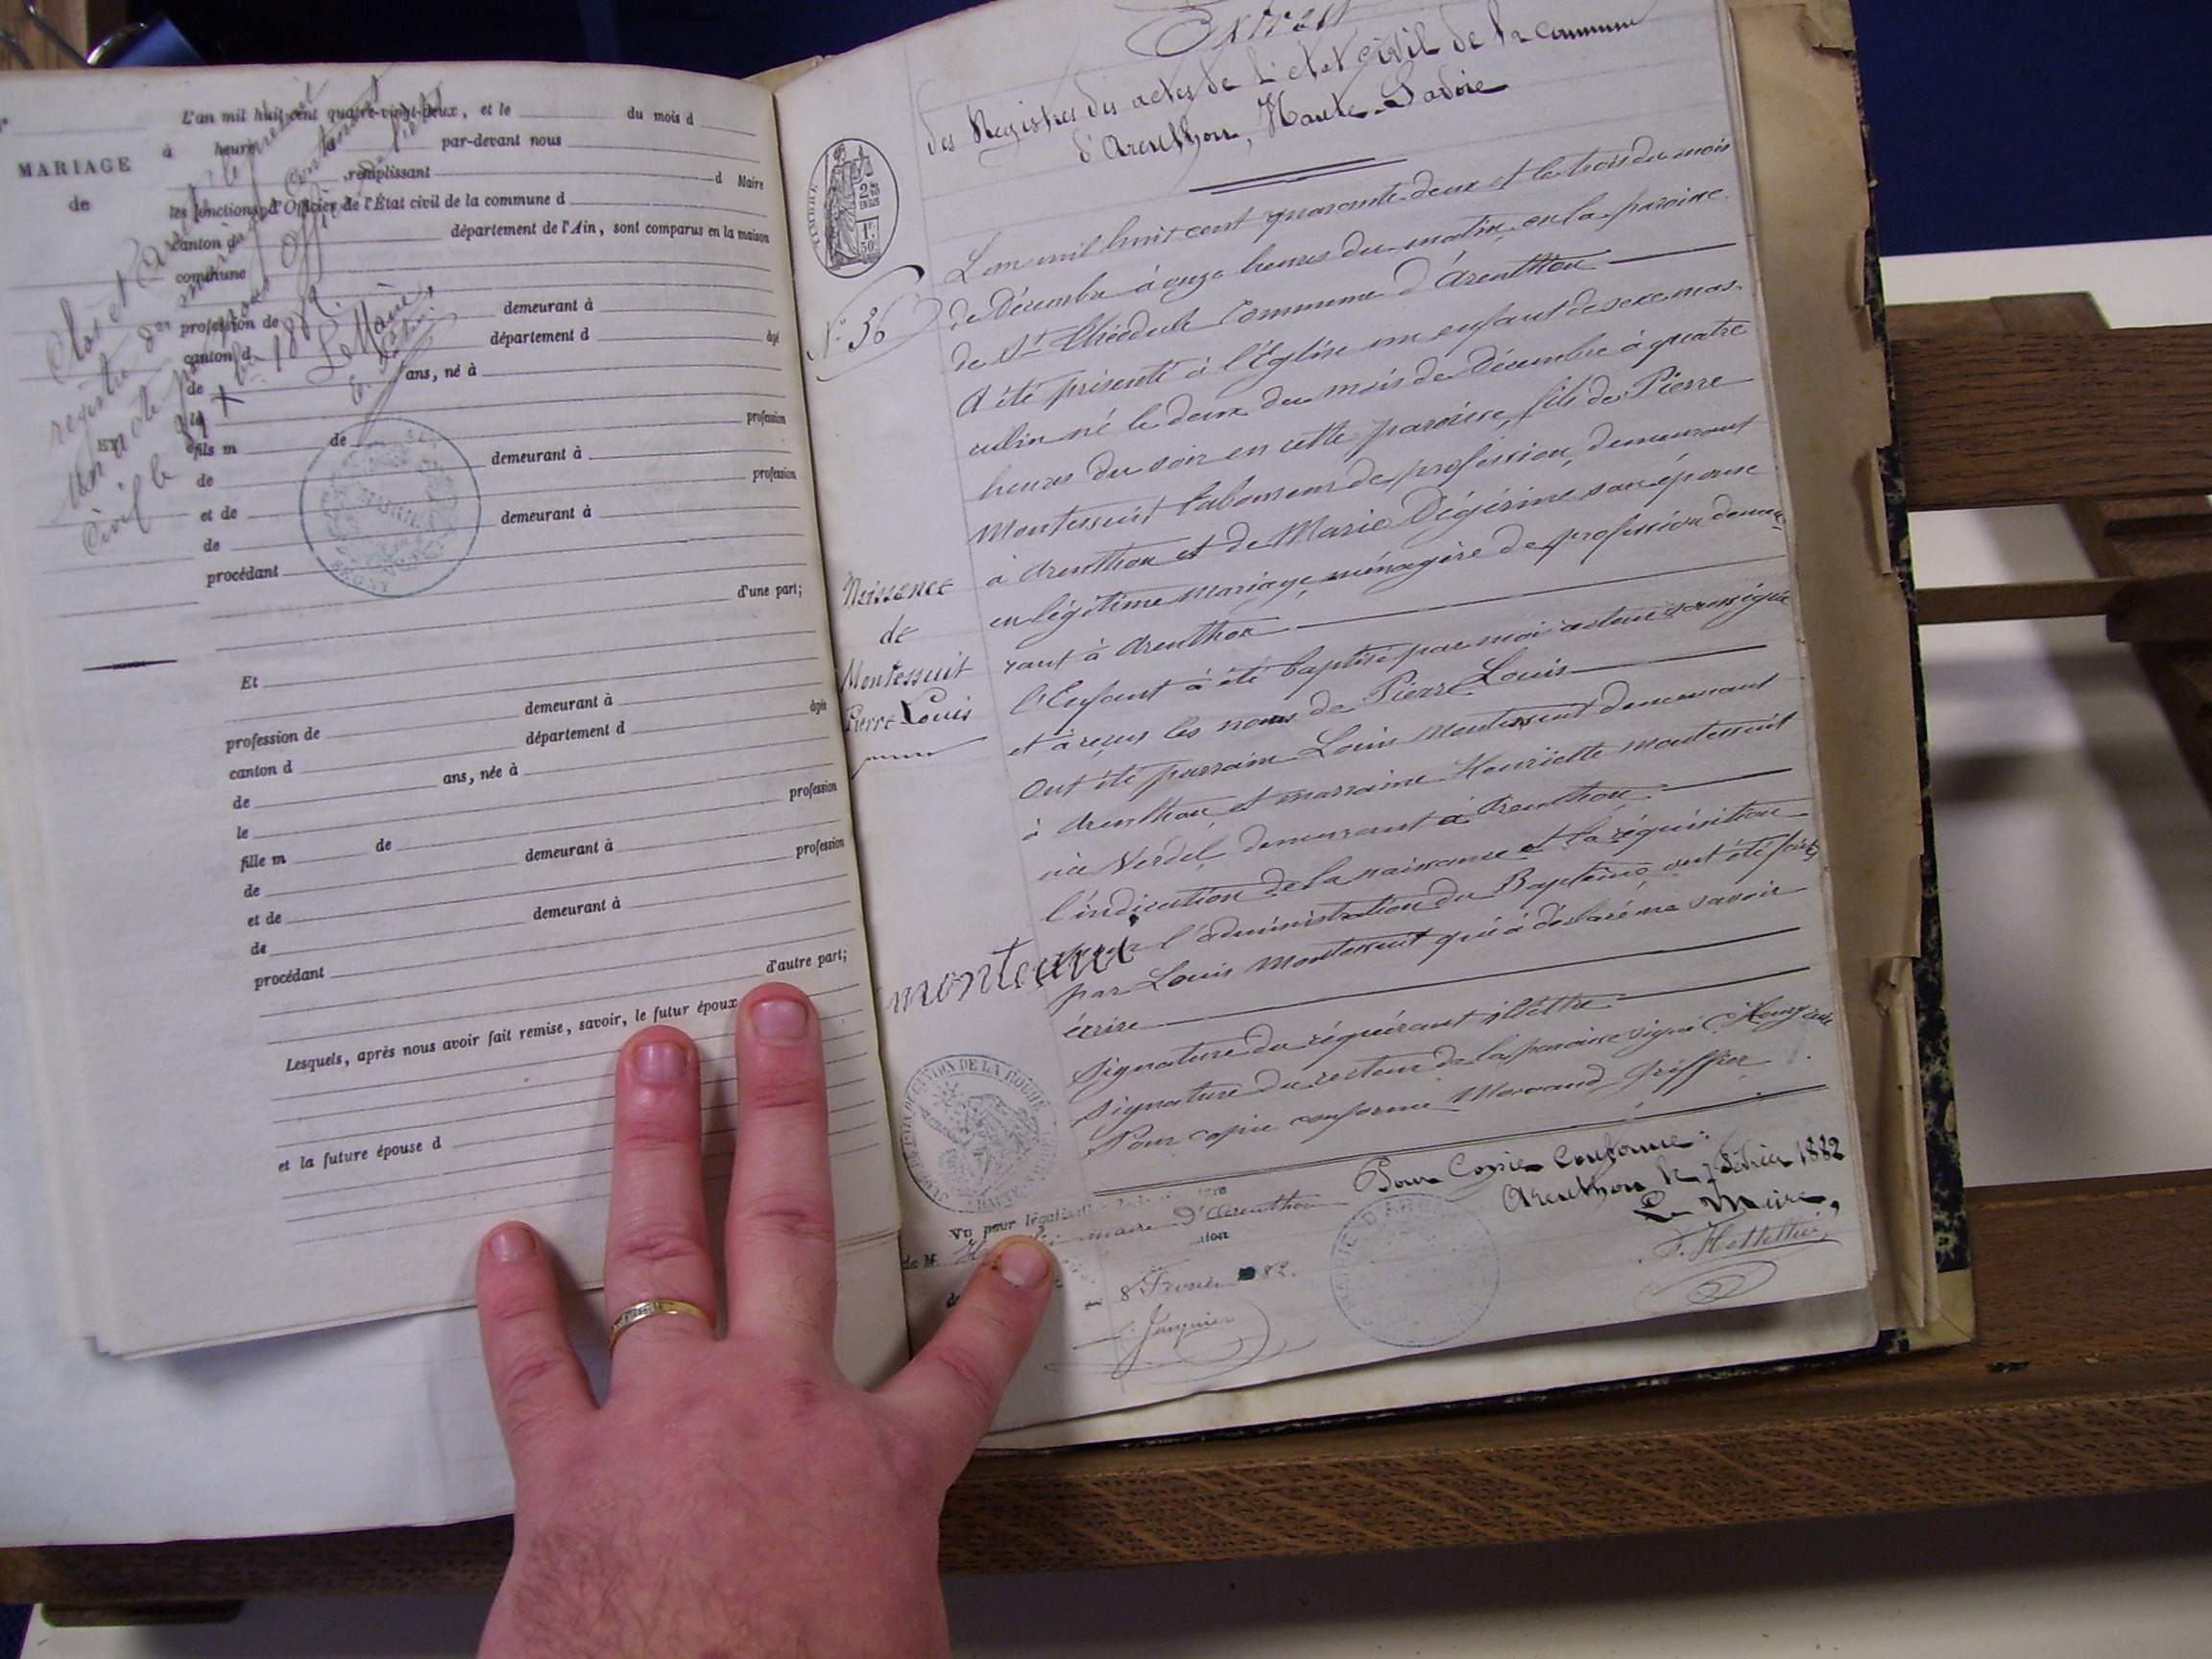 L'an mil huit cent quatre-vingt-deux, et le du mois d
MARIAGE
à heure par-devant nous
de
remplissant d Maire
les fonctions d'Officier de l'État civil de la commune d
canton de département de l'Ain, sont comparus en la maison
commune
profession de demeurant à
canton d département d âgé
de ans, né à
le
fils m de profession
de demeurant à
et de profession
de demeurant à
procédant
d'une part;
Et
profession de demeurant à
canton d département d âgée
de ans, née à
le
fille m de profession
de demeurant à
et de profession
de demeurant à
procédant
d'autre part;
Lesquels, après nous avoir fait remise, savoir, le futur époux
et la future épouse d
Clos et arrêté le présent
registre des mariages contenant
un acte par nous officier de l'état
civil le 1882.
Le Maire,
Extrait
des Registres des actes de l'état civil de la commune
d'Arenthon, Haute-Savoie
TIMBRE
2
1F
50
N° 36
L'an mil huit cent quarante deux et le trois du mois
de Décembre à onze heures du matin, en la paroisse
de St Théodule Commune d'Arenthon
A été présenté à l'Église un enfant de sexe mas-
culin né le deux du mois de Décembre à quatre
heures du soir en cette paroisse, fils de Pierre
Montessuit laboureur de profession, demeurant
à Arenthon et de Marie Dégérine son épouse
en légitime mariage, ménagère de profession demeu-
rant à Arenthon
l'Enfant à été baptisé par moi soussigné
et à reçus les noms de Pierre Louis
Ont été parrain Louis Montessuit demeurant
à Arenthon et marraine Henriette Montessuit
née Verdel, demeurant à Arenthon.
l'indication de la naissance et la réquisition
pour l'administration du Baptême, ont été faites
par Louis Montessuit qui à déclaré ne savoir
écrire
Signature du requérant illettré
Signature du recteur de la paroisse signé
Pour copie conforme
Naissance
de
Montessuit
Pierre Louis
Pour Copie Conforme:
Arenthon le 7 Février 1882
Le Maire,
Vu pour légalisation
de M. maire d'Arenthon
8 Février 82.